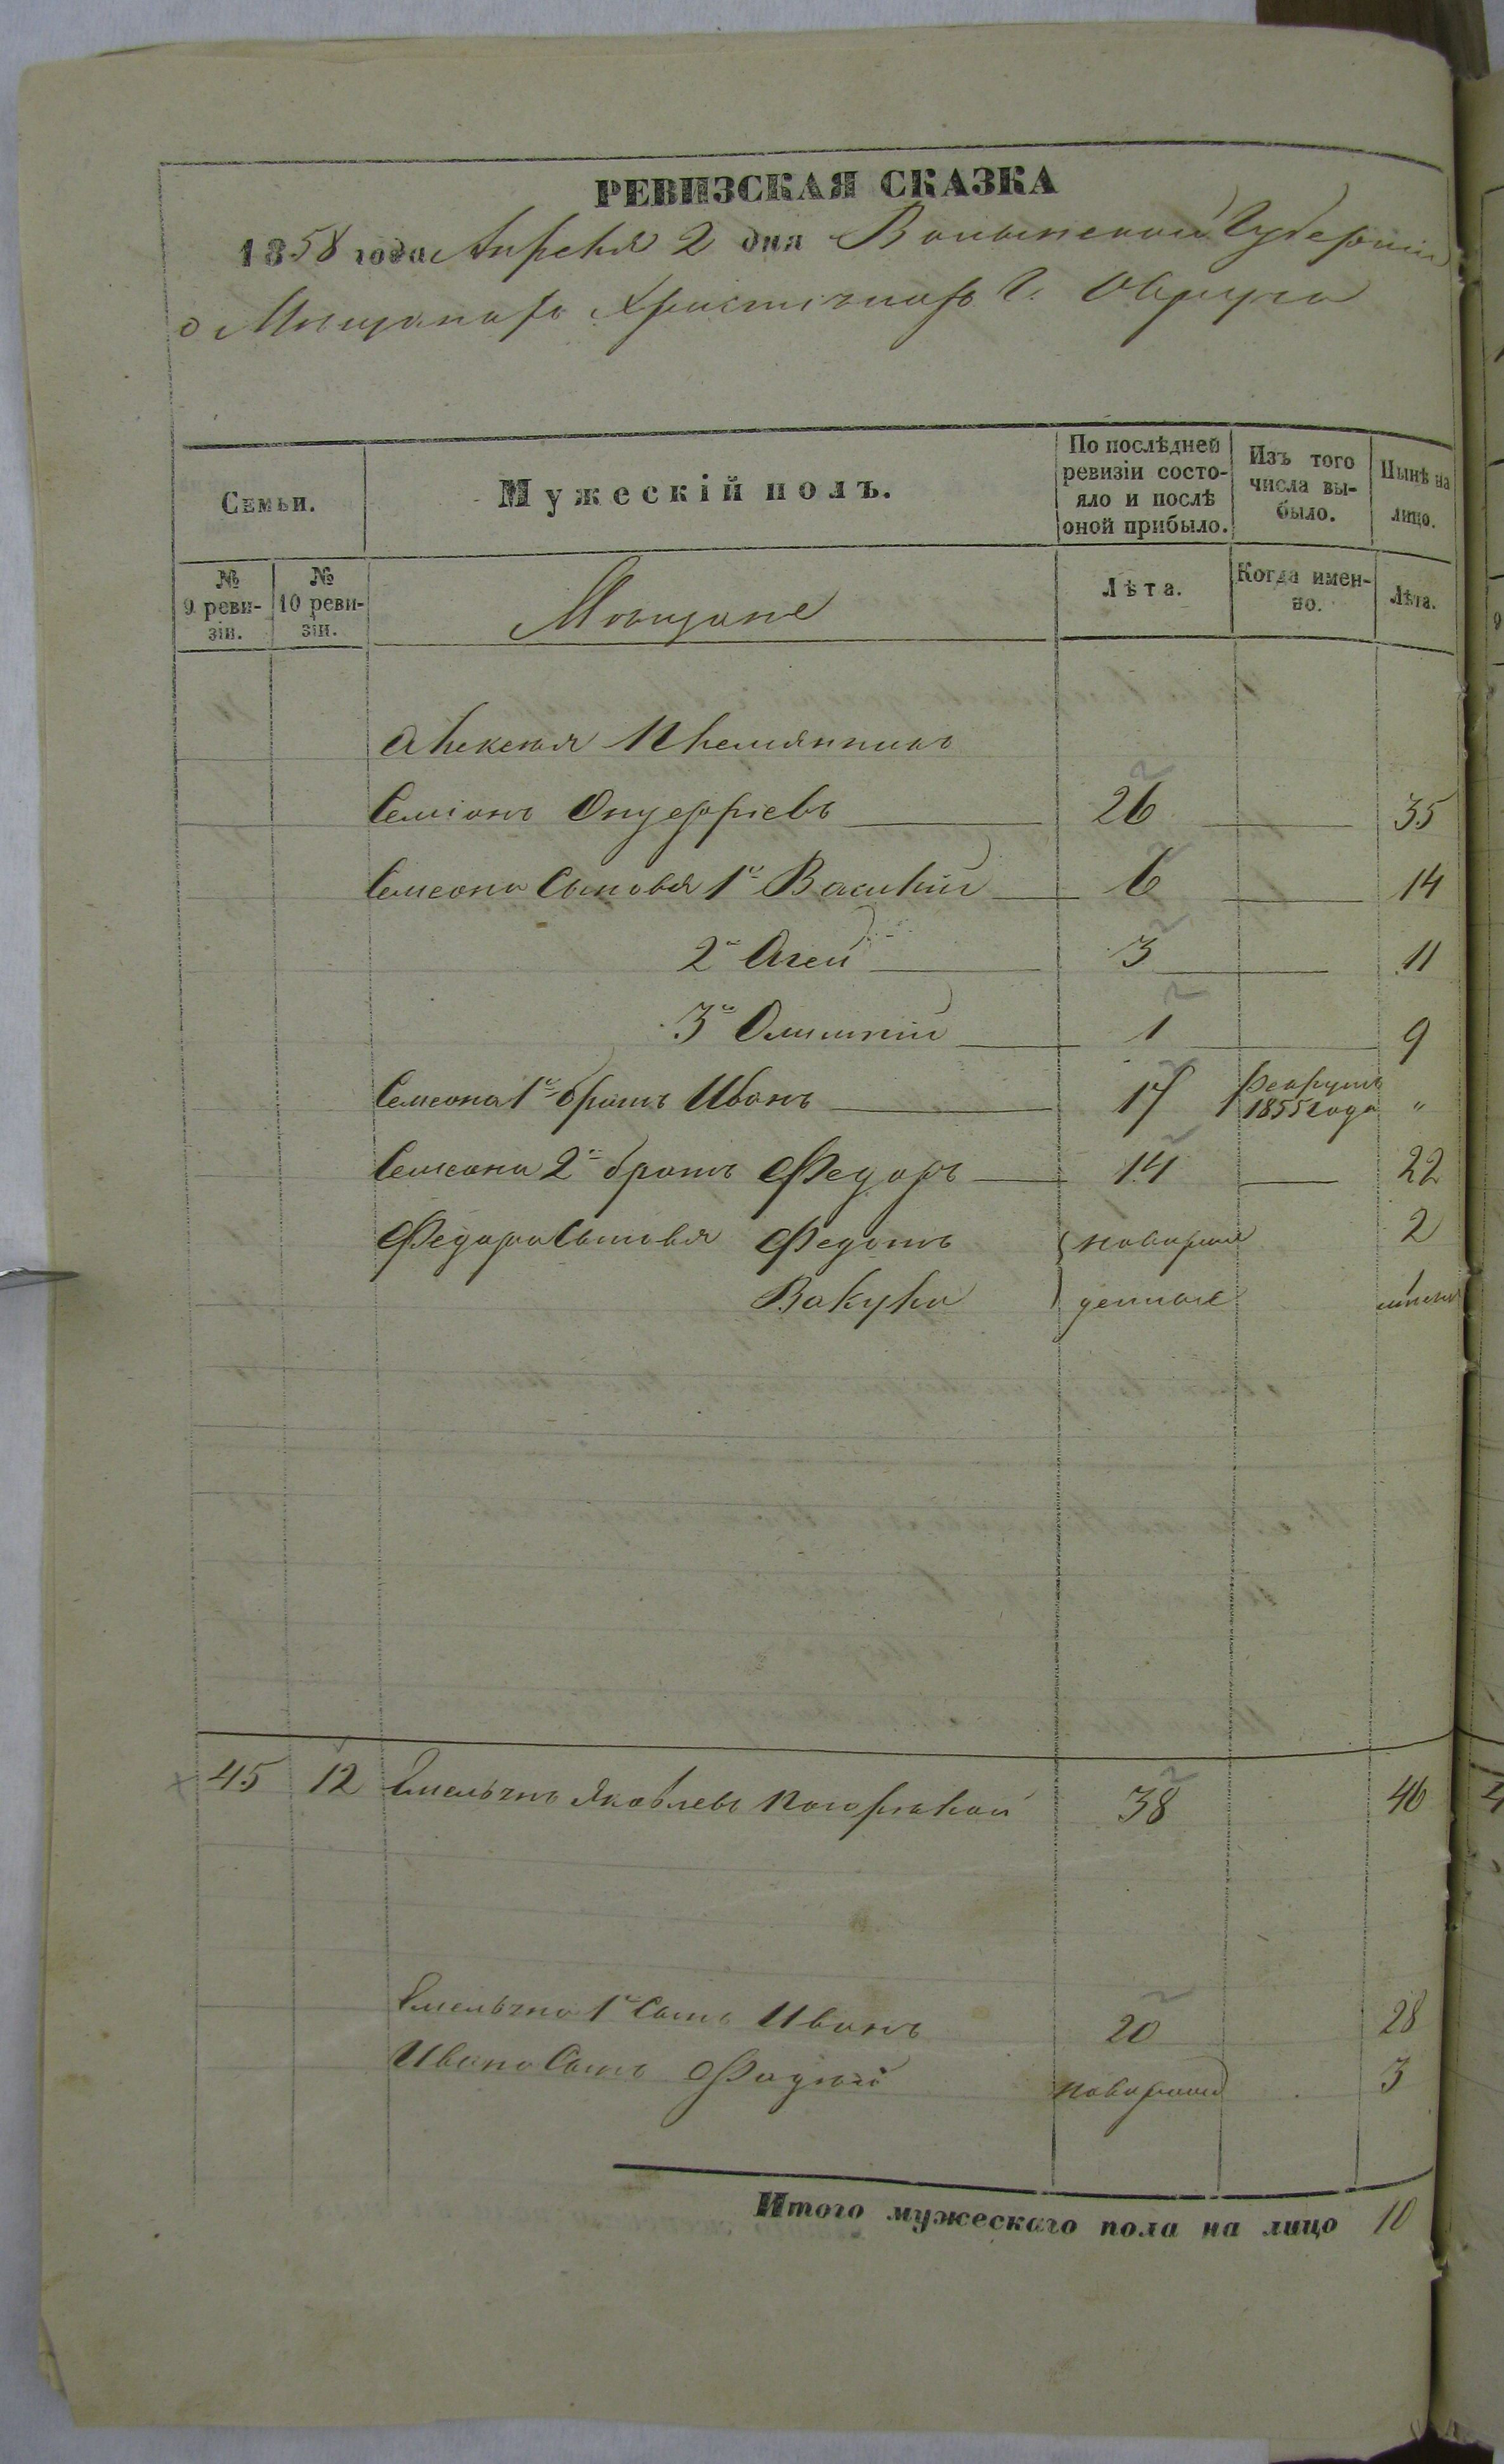 РЕВИЗСКАЯ СКАЗКА
1858 года Апреля 2 дня Волынской Губернии
о Мещанахъ Христіанахъ Г. Овруча
Семьи.
Мужескій полъ.
По послѣдней ревизіи состо-
яло и послѣ
оной прибыло.
Изъ того
числа вы-
было.
Нынѣ на
лицо.
№
9 реви-
зіи.
№
10 реви-
зіи.
Мещане
Лѣта.
Когда имен-
но.
Лѣта.
Алексея Племянникъ
Семіонъ Онуфріевъ 26 35
Семена Сыновья 1й Василій 6 14
2й Агей 3 11
3й 1 9
Семена 1й братъ Иванъ 17 рекрутъ 1855 года "
Семена 2й братъ Федоръ 14 22
Федора Сыновья Федотъ новорож 2
Вакула денные
45 12 Емельянъ Яковлевъ 38 46
Емельяна 1й Сынъ Иванъ 20 28
Ивана Сынъ Фадей 3
Итого мужескаго пола на лицо 10